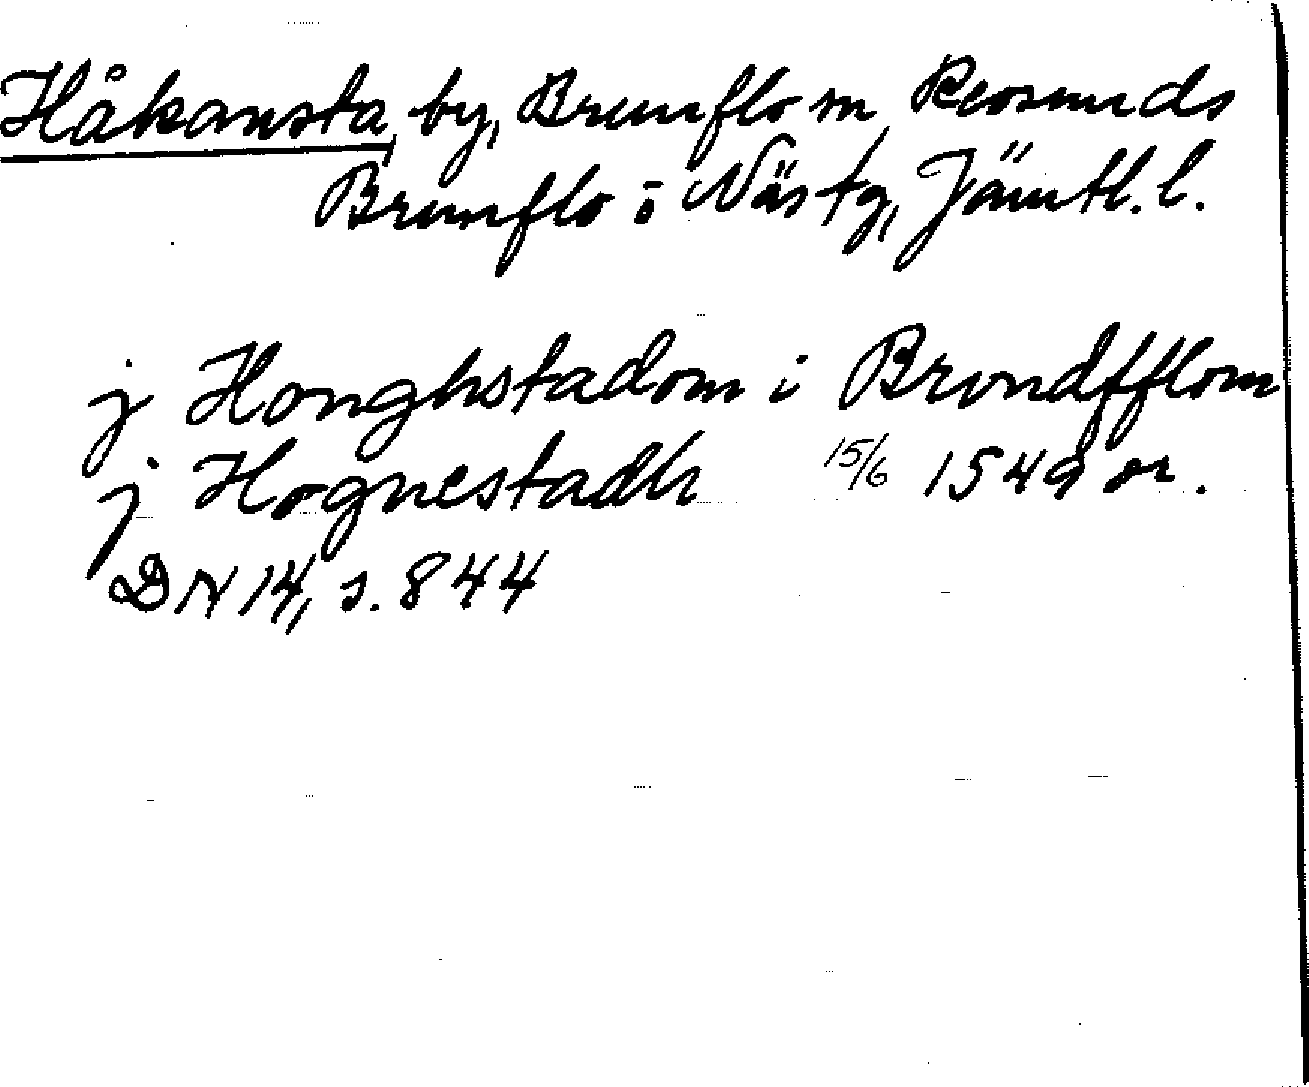 Håkansta, by, Brunflo sn, Revsunds
Brunflo o Näs tg, Jämtl. l.
j Honghstadom i Brvndfflom
j Hognestadh 15/6 1549 or.
DN 14, s. 844